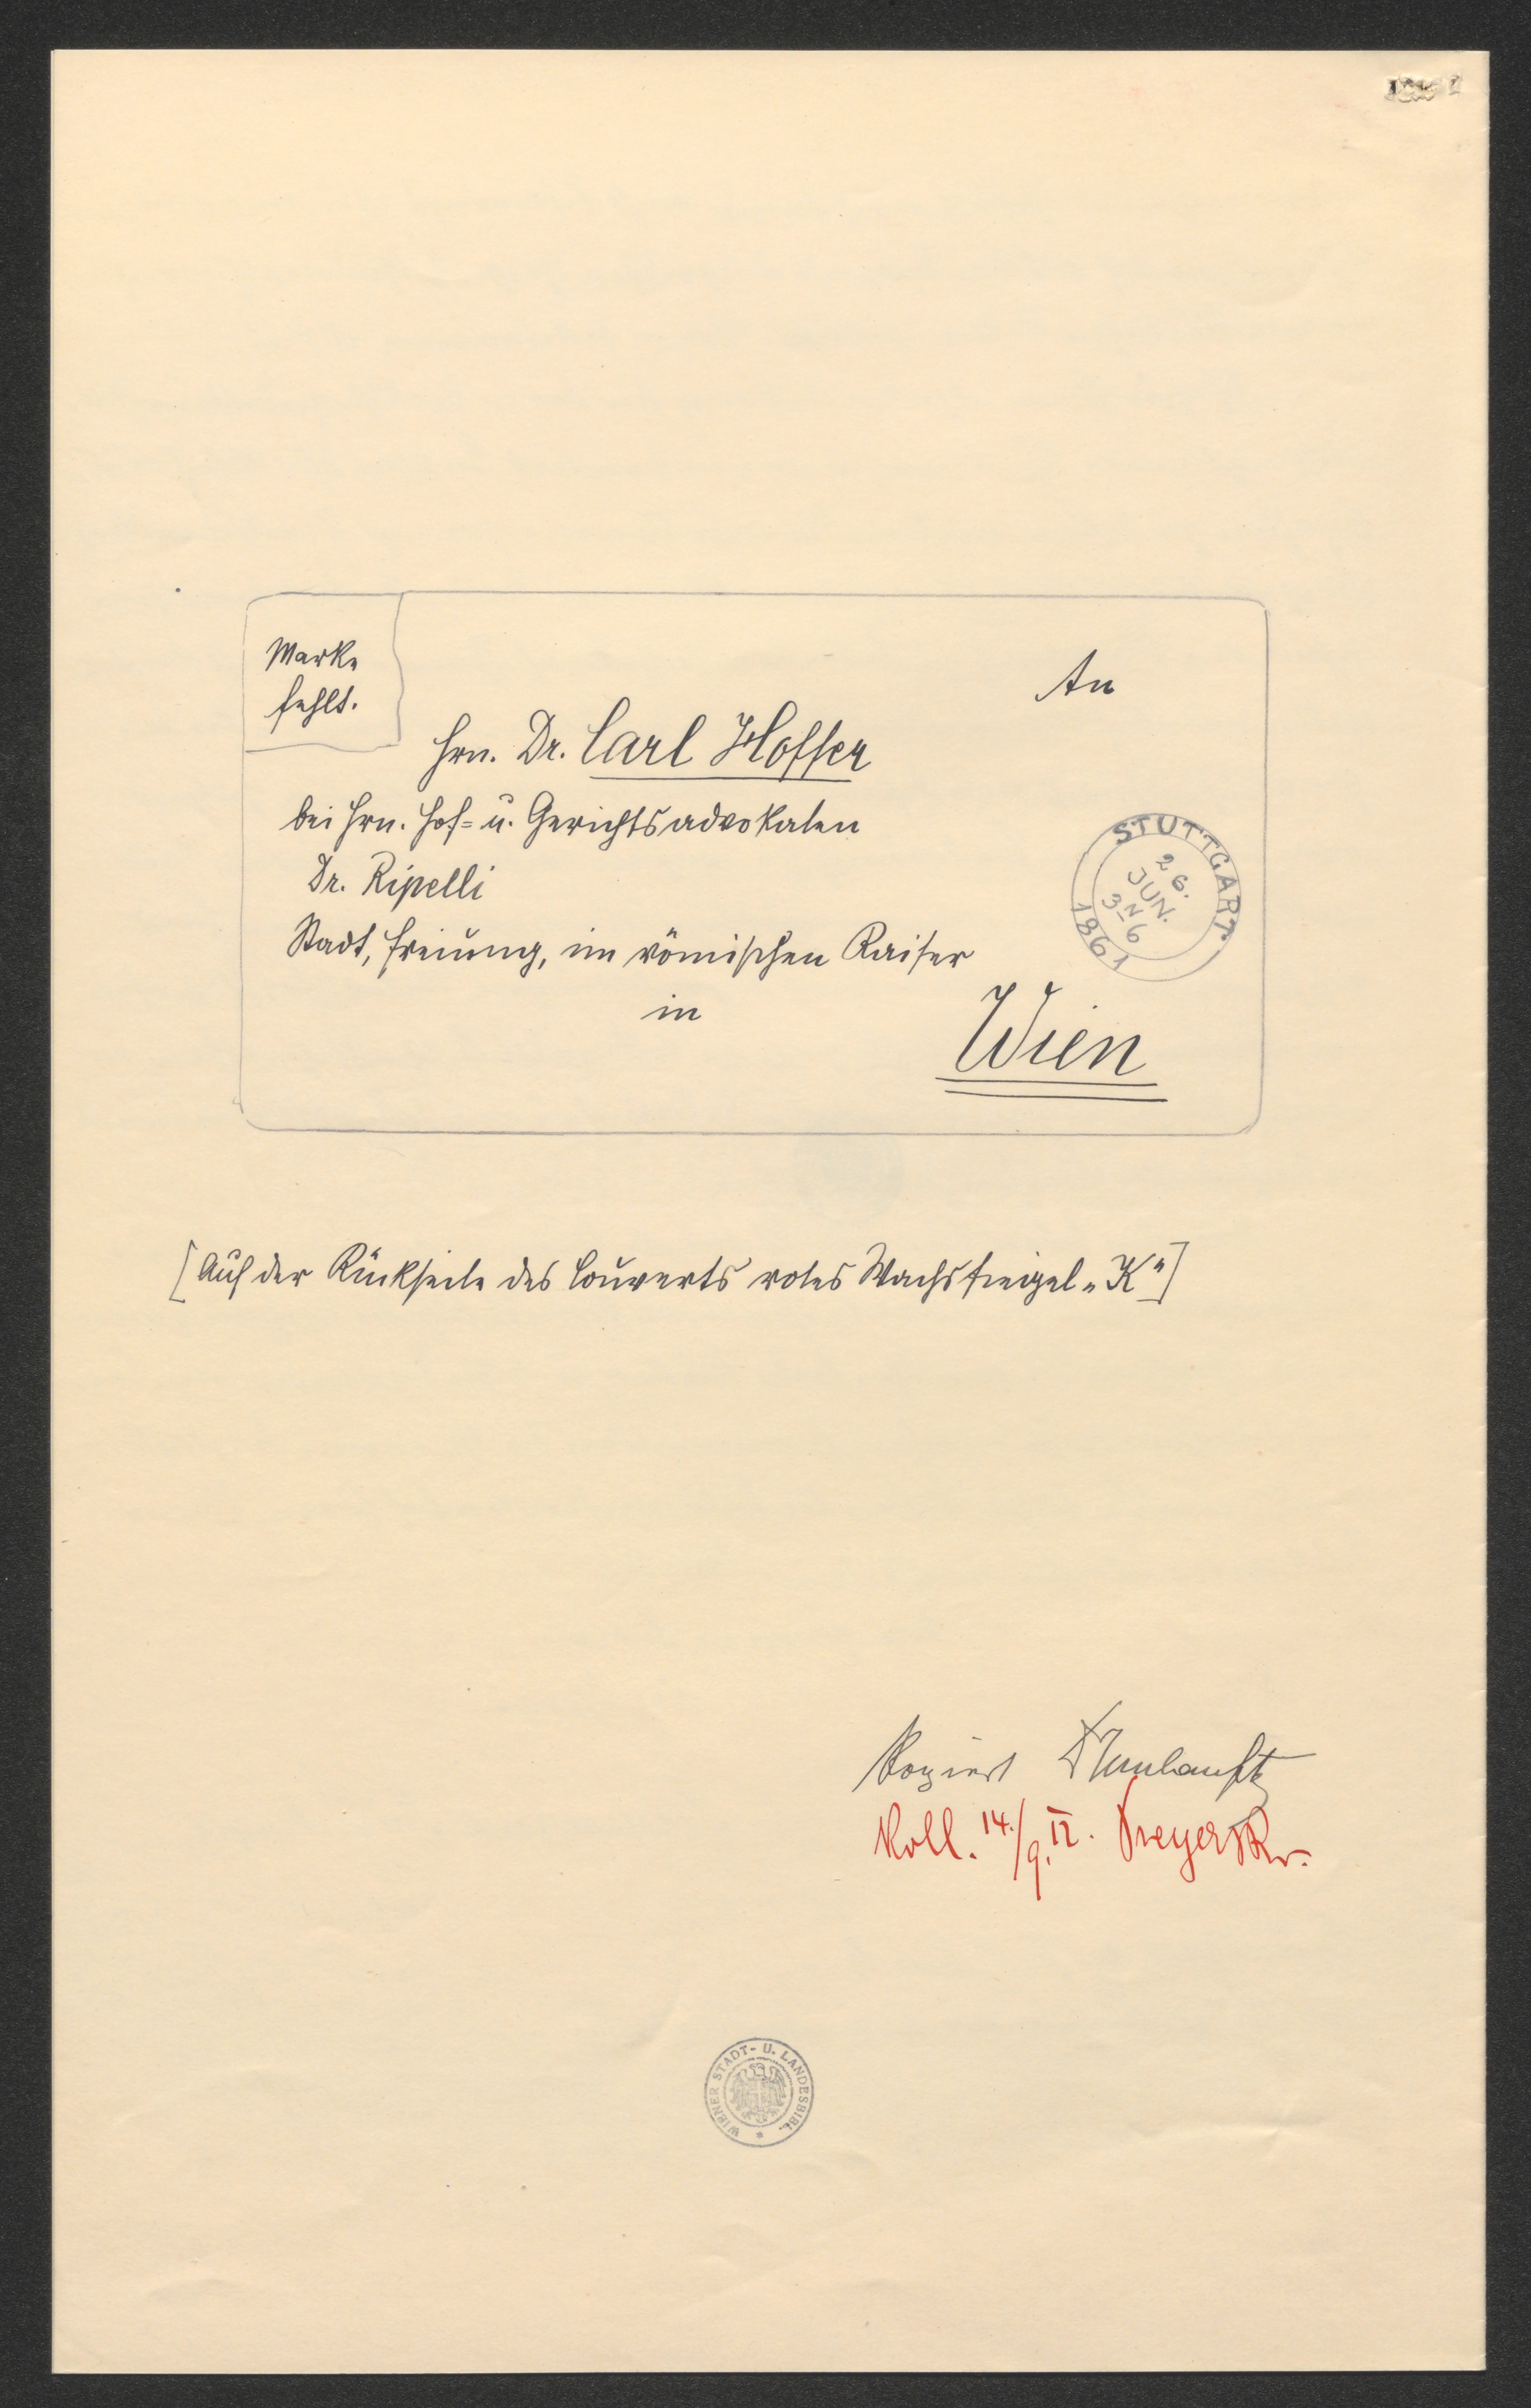 Marke
fehlt.
An
Hrn. Dr. Carl Hoffer
bei Hrn. Hof- u. Gerichtsadvokaten
Dr. Ripelli
Stadt, Freiung, im römischen Kaiser
in
Wien
STUTTGART
26.
JUN.
3 N 6
1861
[Auf der Rückseite des Couverts rotes Wachssiegel „K"]
Kopiert
Koll. 14./9.
WIENER STADT- U. LANDESBIBL.